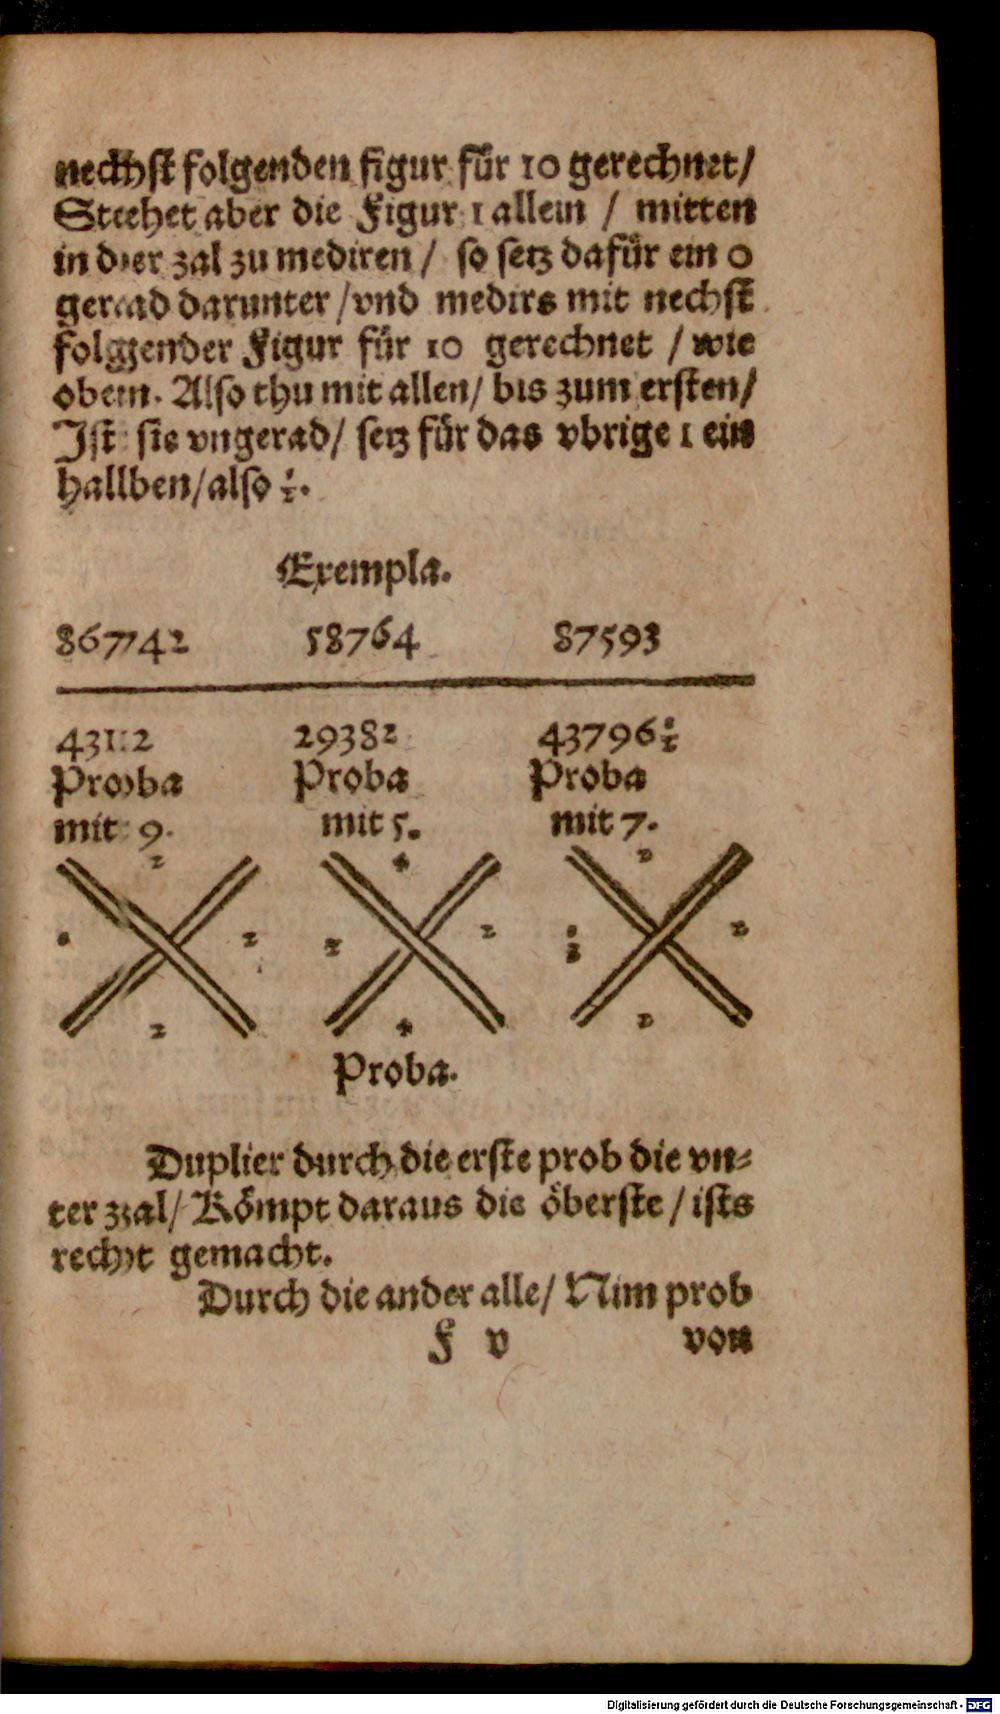 nechst folgenden figur für 10 gerechnet/
Stehet aber die Figur 1 allein / mitten
in der zal zu mediren / so setz dafür ein 0
gerad darunter /vnd medirs mit nechst
folgender Figur für 10 gerechnet / wie
oben. Also thu mit allen/ bis zum ersten/
Ist sie vngerad/ setz für das vbrige 1 ein
halben/also ½.
Exempla.
867742 58764 87593
29382 43796½
Proba Proba Proba
mit 9. mit 5. mit 7.
2 4 2
2 2 2
2 4 2
Proba.
Duplier durch die erste prob die vn⸗
ter zal/ Kömpt daraus die öberste / ists
recht gemacht.
Durch die ander alle/ Nim prob
F v von
Digitalisierung gefördert durch die Deutsche Forschungsgemeinschaft - DFG